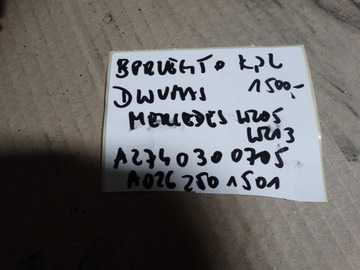 SPRZĘGŁO KPL
DWUMAS 1500,-
MERCEDES W205
W213
A2740300705
A0262501501